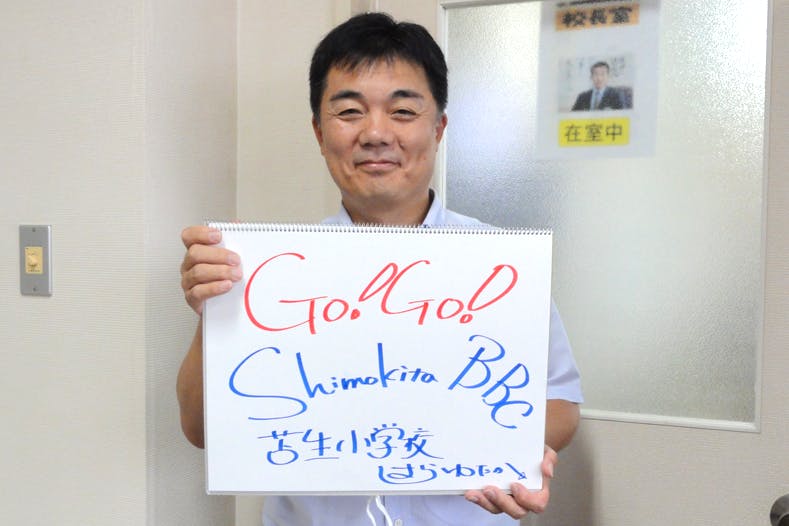 校長室
在室中
Go! Go!
Shimokita BBC
苫生小学校